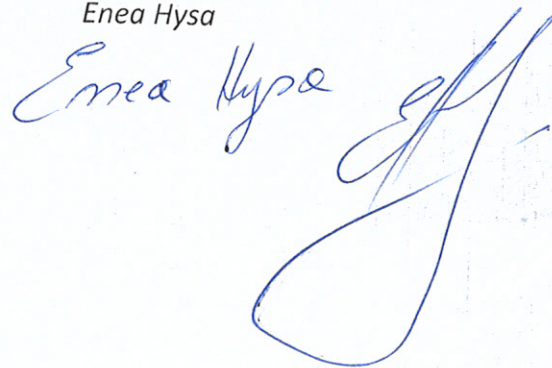 Enea Hysa
Enea Hysa